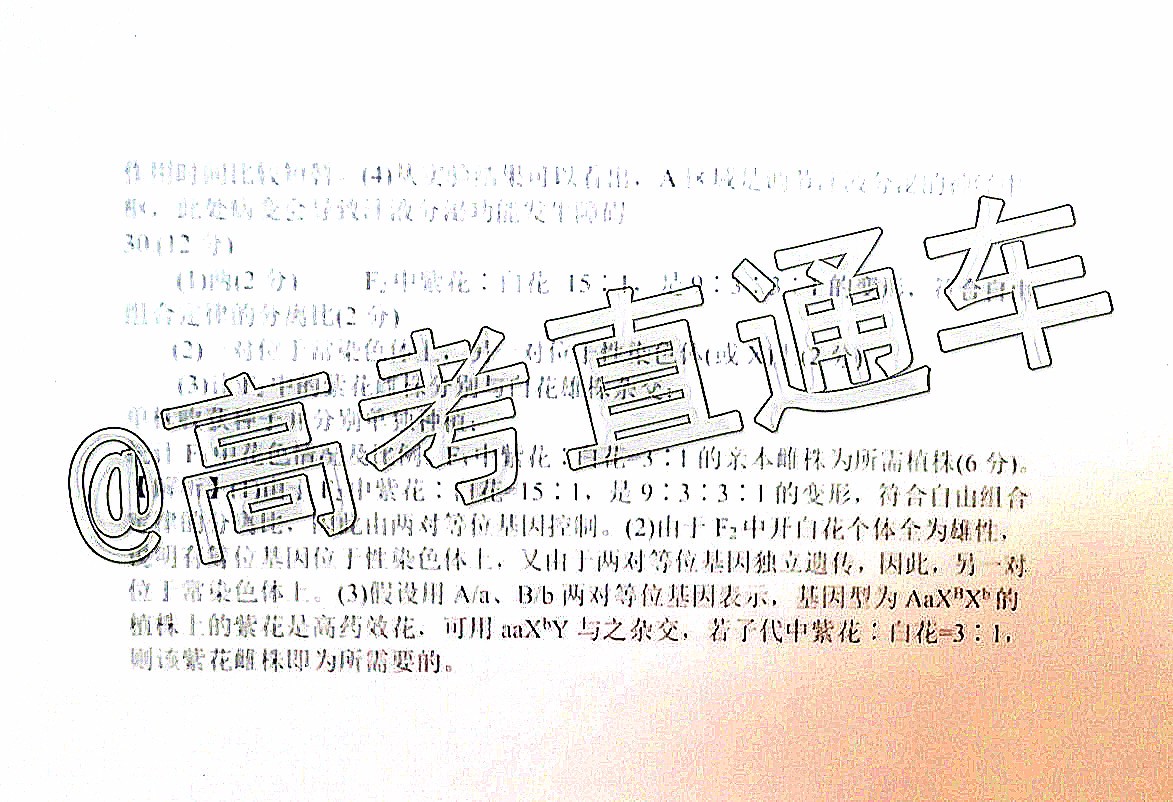 作用时间比较短暂。(4)从实验结果可以看出，A区域是调节汗液分泌的神经中
枢，此处病变会导致汁液分泌功能发生障碍
30 (12 分)
(1)两(2 分) F₂中紫花∶白花=15∶1，是9∶3∶3∶1的变形，符合自由
组合定律的分离比(2 分)
(2)一对位于常染色体上，另一对位于性染色体(或 X)上(2分)
(3)让F₂中的紫花雌株分别与白花雄株杂交，
单株收获种子并分别单独种植；
花色情况及比例 中紫花∶白花=3∶1的亲本雌株为所需植株(6 分)。
中紫花∶白花=15∶1，是 9∶3∶3∶1 的变形，符合自由组合
定律的分离比，因此由两对等位基因控制。(2)由于 F₂中开白花个体全为雄性，
说明有等位基因位于性染色体上，又由于两对等位基因独立遗传，因此，另一对
位于常染色体上。(3)假设用 A/a、B/b 两对等位基因表示，基因型为 AaXᴮXᵇ的
植株上的紫花是高药效花，可用 aaXᵇY 与之杂交，若子代中紫花∶白花=3∶1，
则该紫花雌株即为所需要的。
@高考直通车